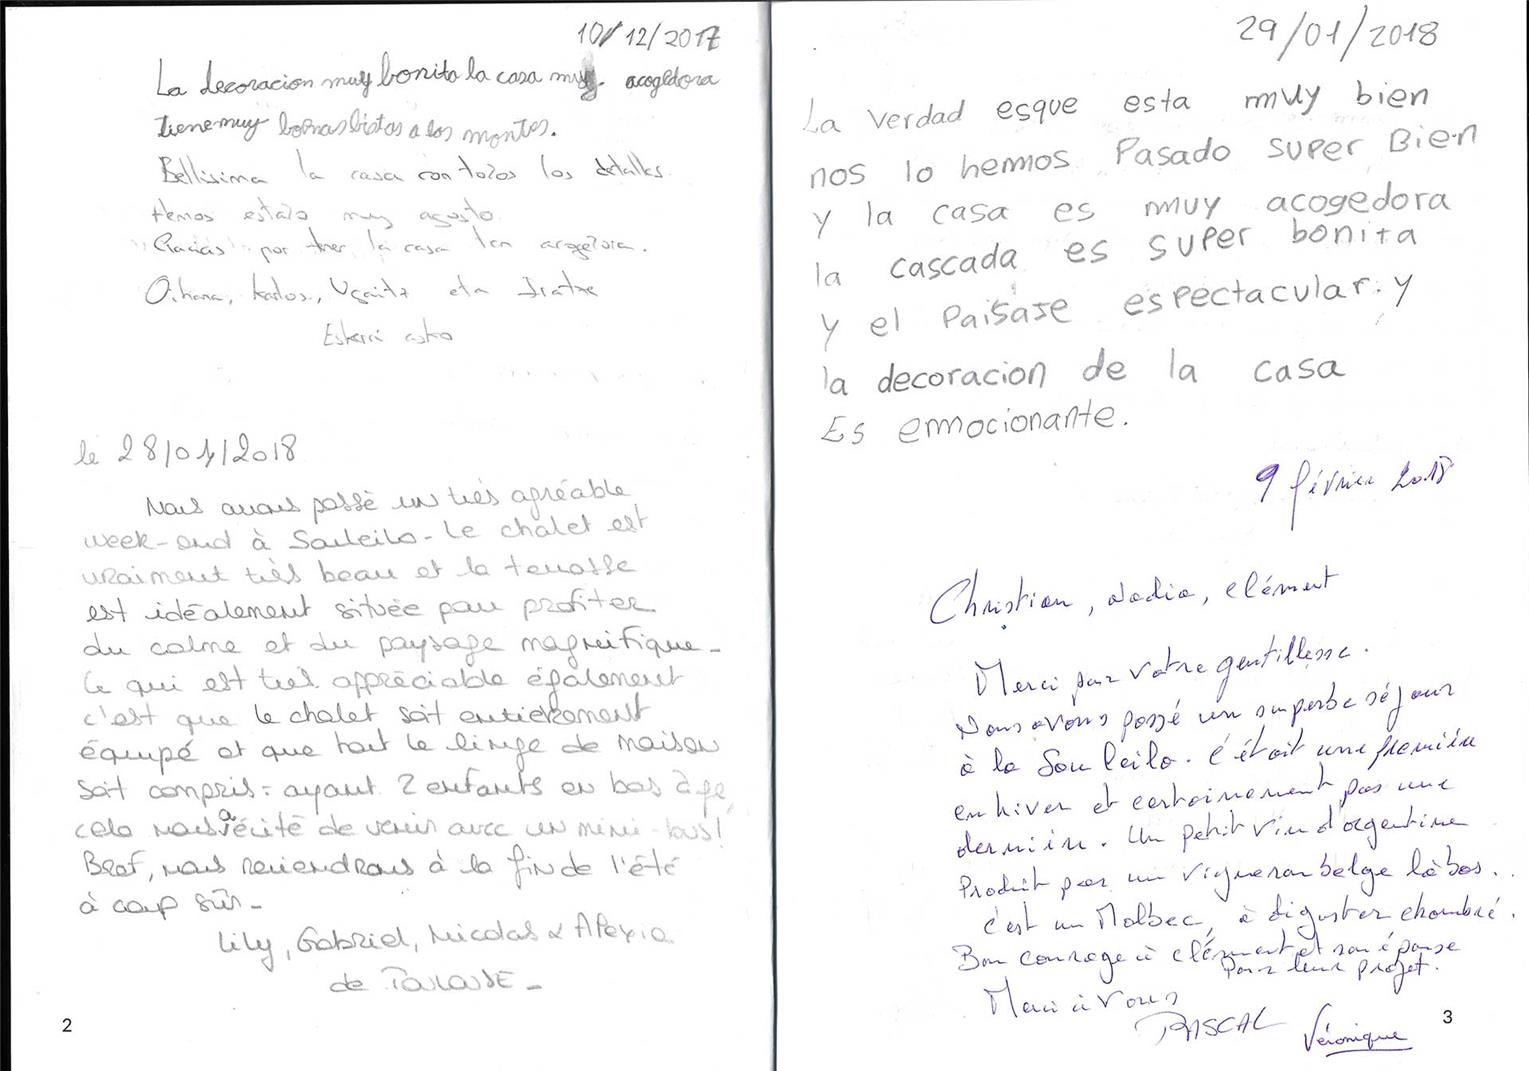 10/12/2017
La decoracion muy bonita la casa muy acogedora
tiene muy bonas bistas a los montes.
Bellisima la casa con todos los detalles.
Hemos estado muy agusto.
Gracias por tener la casa tan acogedora.
Oihana, Karlos, Ugaitz eta Iratxe
Eskerri asko
le 28/01/2018
Nous avons passé un très agréable
week-end à Souleilo - Le chalet est
vraiment très beau et la terrasse
est idéalement située pour profiter
du calme et du paysage magnifique -
Ce qui est très appréciable également
c'est que le chalet soit entièrement
équipé et que tout le linge de maison
soit compris : ayant 2 enfants en bas âge,
cela nous a évité de venir avec un mini-bus !
Bref, nous reviendrons à la fin de l'été
à coup sûr -
Lily, Gabriel, Nicolas & Alexia
de Toulouse -
2
29/01/2018
La verdad esque esta muy bien
nos lo hemos Pasado super Bien
y la casa es muy acogedora
la cascada es super bonita
y el Paisase espectacular. y
la decoracion de la casa
Es emocionante.
9 février 2018
Christian, Nadia, Clément
Merci par votre gentillesse.
Nous avons passé un superbe séjour
à la Souleilo. C'était une première
en hiver et certainement pas une
dernière. Un petit vin d'argentine
Produit par un vigneron belge là bas.
c'est un Malbec, à diguster chambré.
Bon courage à Clément et son épouse
Pour leur projet.
Merci à vous
PASCAL Véronique
3